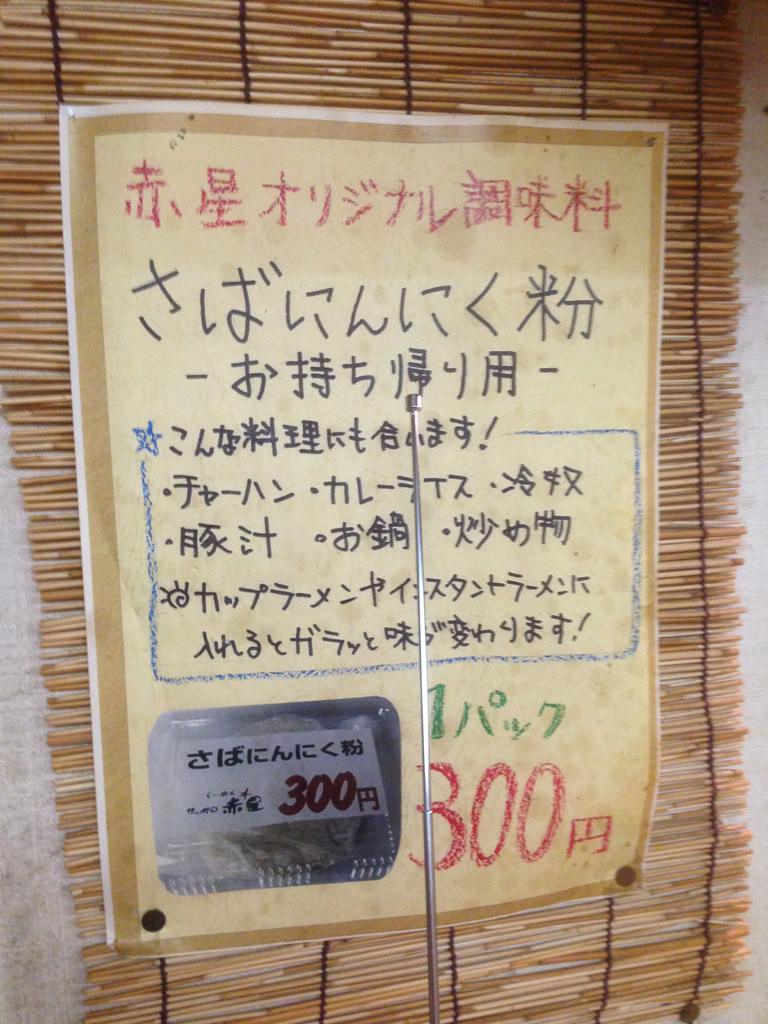 赤星オリジナル調味料
さばにんにく粉
-お持ち帰り用-
☆こんな料理にも合います!
・チャーハン ・カレーライス ・冷奴
・豚汁 ・お鍋 ・炒め物
カップラーメンやインスタントラーメンに
入れるとガラッと味が変わります!
さばにんにく粉
らーめん
サッポロ赤星 300円
1パック
300円